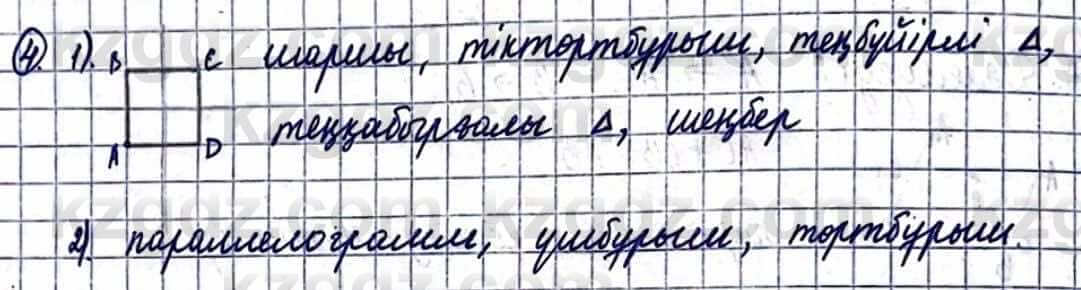 ④. 1). B C шаршы, тіктөртбұрыш, теңбүйірлі Δ,
A D теңқабырғалы Δ, шеңбер
2) параллелограмм, үшбұрыш, төртбұрыш.
kzgdz.com